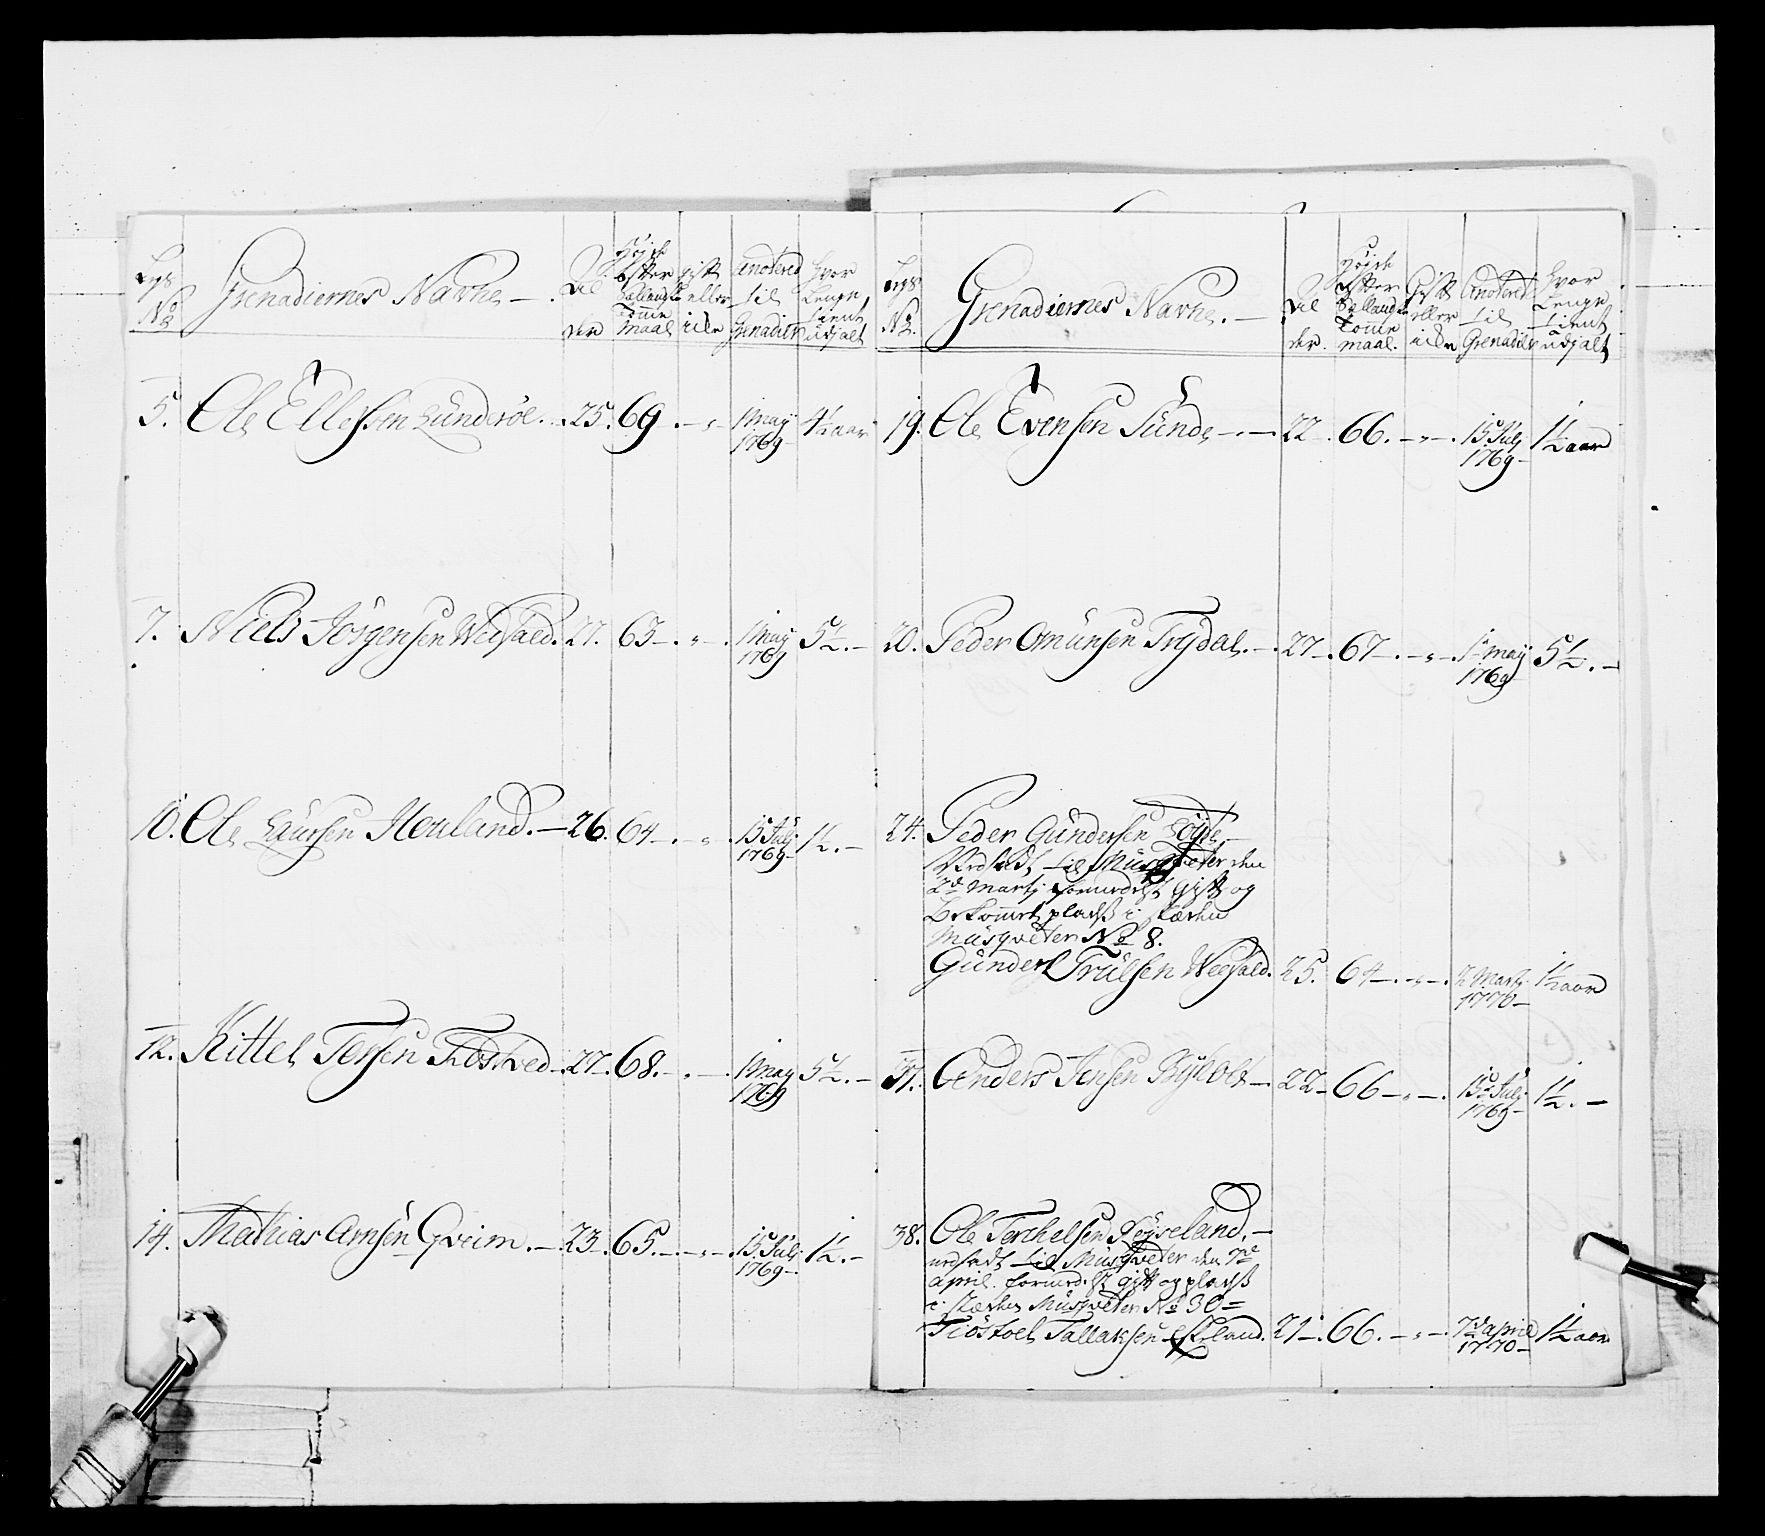 Lægs No
Grenadiernes Navne
Alder
Høyde effter Sællandsk Tomme maal
gift eller ei
Anotered til Grenadiir
hvor Lenge tient udj alt
5. Ole Ellefsen Lunderöe 25. 69. 1 May 1769 4½ aar
7. Niels Jörgensen Weefald. 27. 63 1 May 1769 5½
10. Ole Laursen Houland. 26. 64 15 Julj 1769 1½
12. Kittel Tersen Röstved 27. 68. 1 May 1769 5½
14. Mathias Arnsen Qveim. 23. 65. 15 Julj 1769 1½
Lægs No.
Grenadiernes Navne.
Alder.
Høyde efter Sællandsk Tomme maal.
Gift eller ei
Anotered til Grenadiir
hvor Lenge tient udj alt
19. Ole Evensen Sunde 22 66. 15 Julj 1769 1½ aar
20. Peder Omunsen Trydal. 27 67 1 may 1769 5½.
24. Peder Gundersen
til Musqveter den
2d Martj formedelst gift og
Bekomet plads i stæden
Musqveter No 8.
Gunder Trulsen Weefald. 25. 64 2 Martj 1770 1½ aar
37. Anders Jensen Ryholt 22 66 15 Julj 1769 1½.
38. Ole Terchelsen Röyseland.
udsadt til Musqveter den 7de
april. formedelst gift og plads
i stæden Musqveter No 30
Tiöstoel Tallaksen Eskeland. 21. 66. 7d april 1770 1½ aar